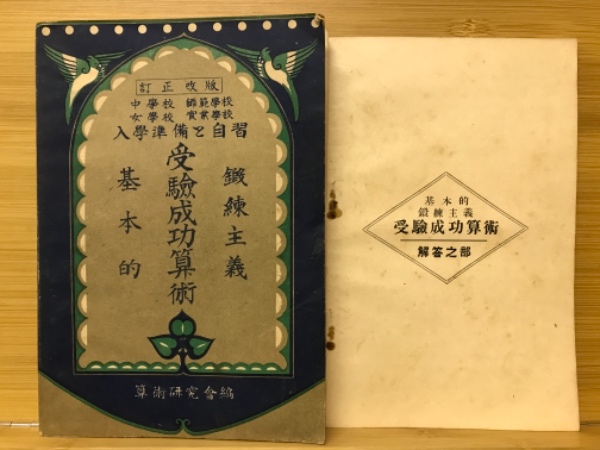 訂正改版
中學校 師範學校
女學校 實業學校
入學準備と自習
基本的
鍛練主義
受驗成功算術
算術研究會編
基本的
鍛練主義
受驗成功算術
解答之部